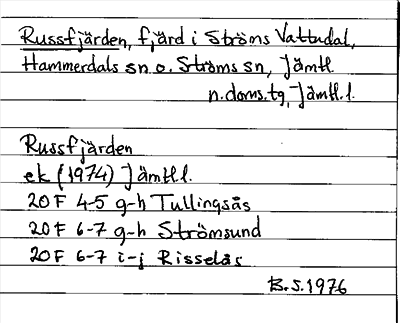 Russfjärden, fjärd i Ströms Vattudal,
Hammerdals sn o. Ströms sn, Jämtl.
n. doms.tg, Jämtl.l.
Russfjärden
ek (1974) Jämtl.l.
20F 4-5 g-h Tullingsås
20F 6-7 g-h Strömsund
20F 6-7 i-j Risselås
B.S. 1976